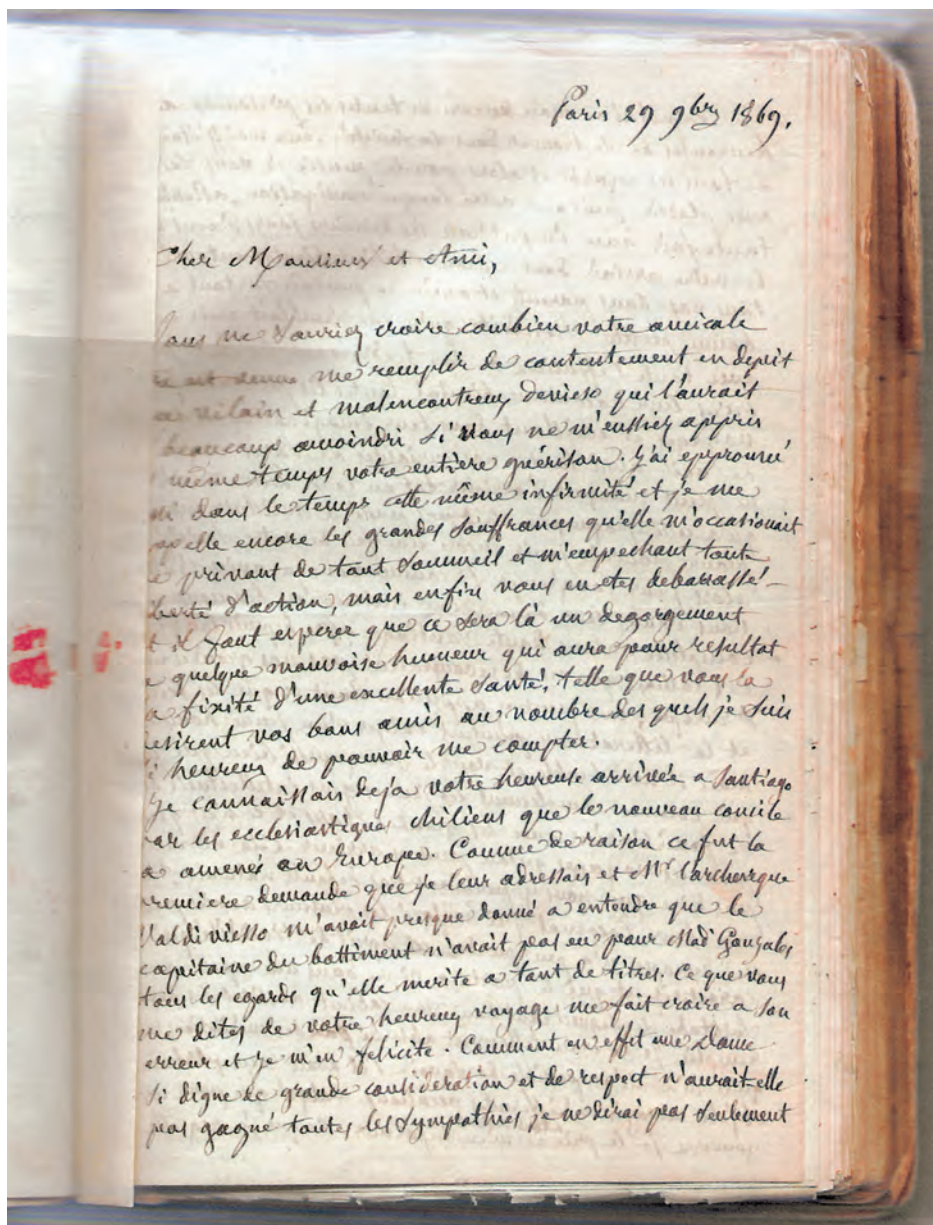 Paris 29 9bre 1869.
Cher Monsieur et Ami,
Vous ne sauriez croire combien votre amicale
est venue me remplir de contentement en depit
vilain et malencontreux devieso qui l'aurait
beaucoup amoindri si vous ne m'eussiez appris
même temps votre entière guérison. J'ai epprouvé
dans le temps cette même infirmité et je me
pelle encore les grandes souffrances qu'elle m'occasionait
e privant de tout sommeil et m'empechant toute
berté d'action, mais enfin vous en etes debarassé -
t il faut esperer que ce sera là un degorgement
e quelque mauvaise humeur qui aura pour resultat
a fixité d'une excellente santé, telle que vous la
esirent vos bons amis au nombre des quels je suis
si heureux de pouvoir me compter.
Je connaissais deja votre heureuse arrivée a Santiago
ar les ecclesiastiques chiliens que le nouveau concile
a amenés en Europe. Comme de raison ce fut la
remiere demande que je leur adressais et Mr l'archeveque
Valdivieso m'avait presque donné a entendre que le
capitaine du battiment n'avait pas eu pour Mad Gonzales
tous les egards qu'elle merite a tant de titres. Ce que vous
me dites de votre heureux voyage me fait croire a son
erreur et je m'en felicite. Comment en effet une Dame
si digne de grande consideration et de respect n'aurait-elle
pas gagné toutes les sympathies je ne dirai pas seulement